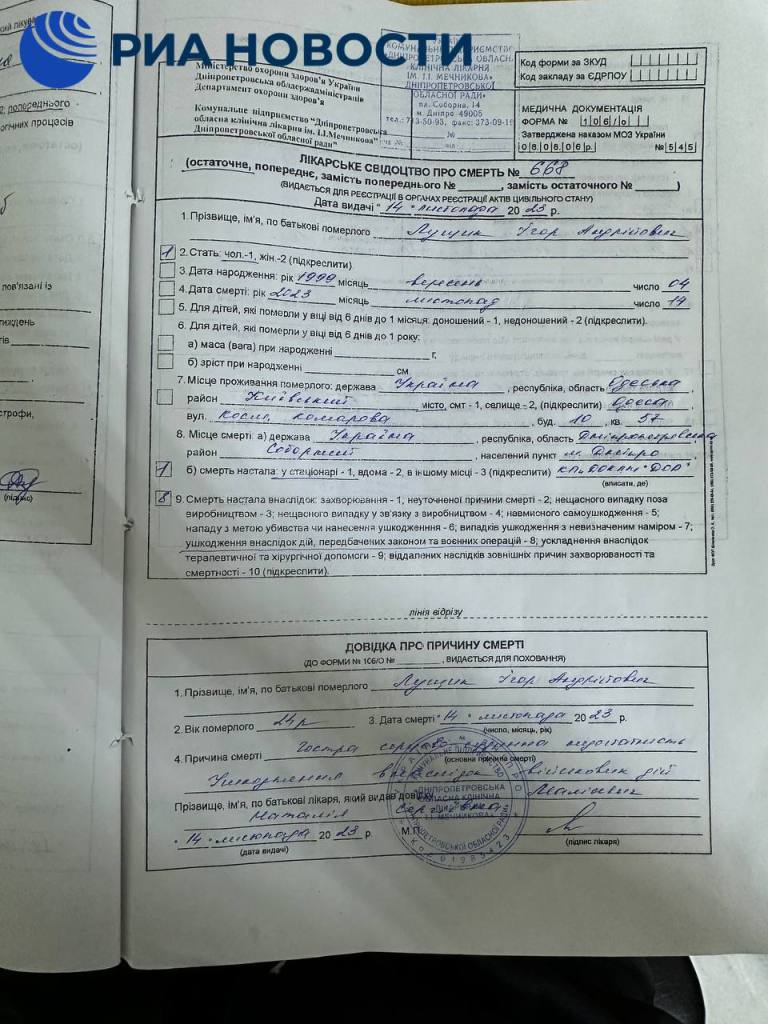 РИА НОВОСТИ
Міністерство охорони здоров'я України
Дніпропетровська облдержадміністрація
Департамент охорони здоров'я
Комунальне підприємство "Дніпропетровська
обласна клінічна лікарня ім.І.І.Мечникова"
Дніпропетровської обласної ради"
КОМУНАЛЬНЕ ПІДПРИЄМСТВО
"ДНІПРОПЕТРОВСЬКА ОБЛАСНА
КЛІНІЧНА ЛІКАРНЯ
ІМ. І.І. МЕЧНИКОВА"
ДНІПРОПЕТРОВСЬКОЇ
ОБЛАСНОЇ РАДИ"
пл. Соборна, 14
м. Дніпро 49005
Код форми за ЗКУД
Код закладу за ЄДРПОУ
МЕДИЧНА ДОКУМЕНТАЦІЯ
ФОРМА № 106/о
Затверджена наказом МОЗ України
080806р. № 545
ЛІКАРСЬКЕ СВІДОЦТВО ПРО СМЕРТЬ № 668
(остаточне, попереднє, замість попереднього № , замість остаточного № )
(ВИДАЄТЬСЯ ДЛЯ РЕЄСТРАЦІЇ В ОРГАНАХ РЕЄСТРАЦІЇ АКТІВ ЦИВІЛЬНОГО СТАНУ)
Дата видачі "14" листопада 2023 р.
1. Прізвище, ім'я, по батькові померлого Лущик Ігор Андрійович
1 2. Стать: чол.-1, жін.-2 (підкреслити)
3. Дата народження: рік 1999 місяць вересень число 04
4. Дата смерті: рік 2023 місяць листопад число
5. Для дітей, які померли у віці від 6 днів до 1 місяця: доношений - 1, недоношений - 2 (підкреслити).
6. Для дітей, які померли у віці від 6 днів до 1 року:
а) маса (вага) при народженні г,
б) зріст при народженні см
7. Місце проживання померлого: держава Україна, республіка, область Одеська
район Київський місто, смт - 1, селище - 2, (підкреслити) Одеса
вул. Косм. Комарова, буд. 10, кв. 57
8. Місце смерті: а) держава Україна, республіка, область Дніпропетровська
район Соборний, населений пункт м. Дніпро
1 б) смерть настала: у стаціонарі - 1, вдома - 2, в іншому місці - 3 (підкреслити)
(вписати, де)
8 9. Смерть настала внаслідок: захворювання - 1, неуточненої причини смерті - 2; нещасного випадку поза
виробництвом - 3; нещасного випадку у зв'язку з виробництвом - 4; навмисного самоушкодження - 5;
нападу з метою убивства чи нанесення ушкодженння - 6; випадків ушкодження з невизначеним наміром - 7;
ушкодження внаслідок дій, передбачених законом та воєнних операцій - 8; ускладнення внаслідок
терапевтичної та хірургічної допомоги - 9; віддалених наслідків зовнішніх причин захворюваності та
смертності - 10 (підкреслити).
лінія відрізу
ДОВІДКА ПРО ПРИЧИНУ СМЕРТІ
(ДО ФОРМИ № 106/О № , ВИДАЄТЬСЯ ДЛЯ ПОХОВАННЯ)
1. Прізвище, ім'я, по батькові померлого Лущик Ігор Андрійович
2. Вік померлого 24р 3. Дата смерті "14" листопада 2023 р.
(число, місяць, рік)
4. Причина смерті Гостра серцево-судинна недостатність
(основна причина смерті)
Ушкодження внаслідок військових дій
Прізвище, ім'я, по батькові лікаря, який видав довідку
Наталія Сергіївна
"14" листопада 2023 р. М.П.
(дата видачі) (підпис лікаря)